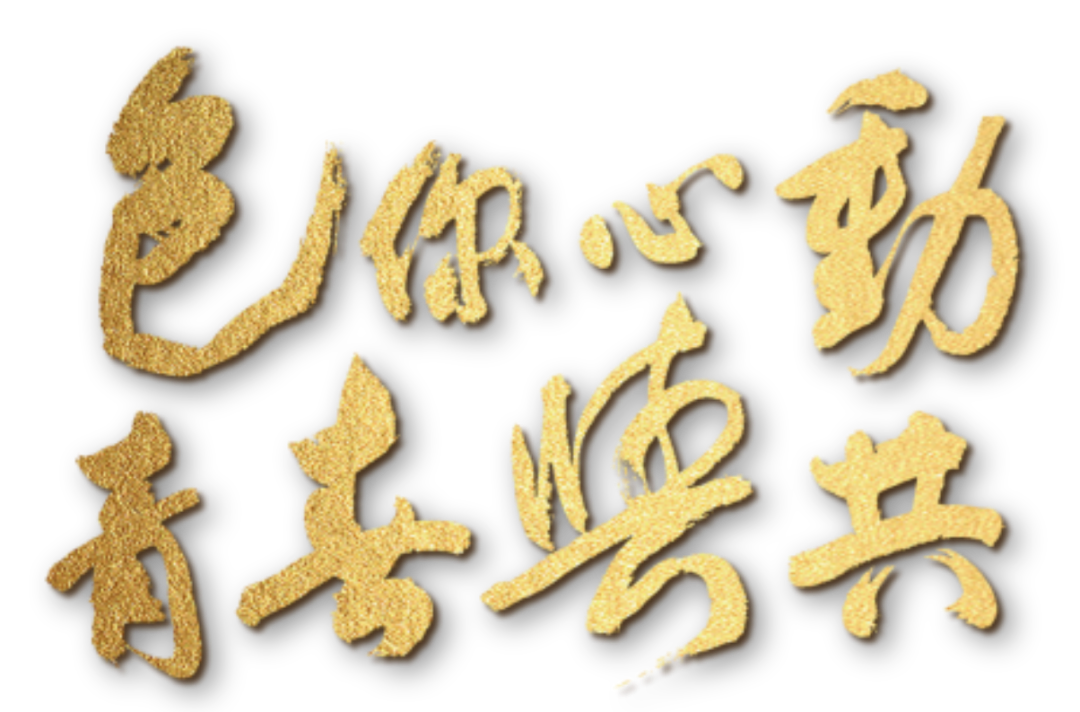 色你心動
青春與共